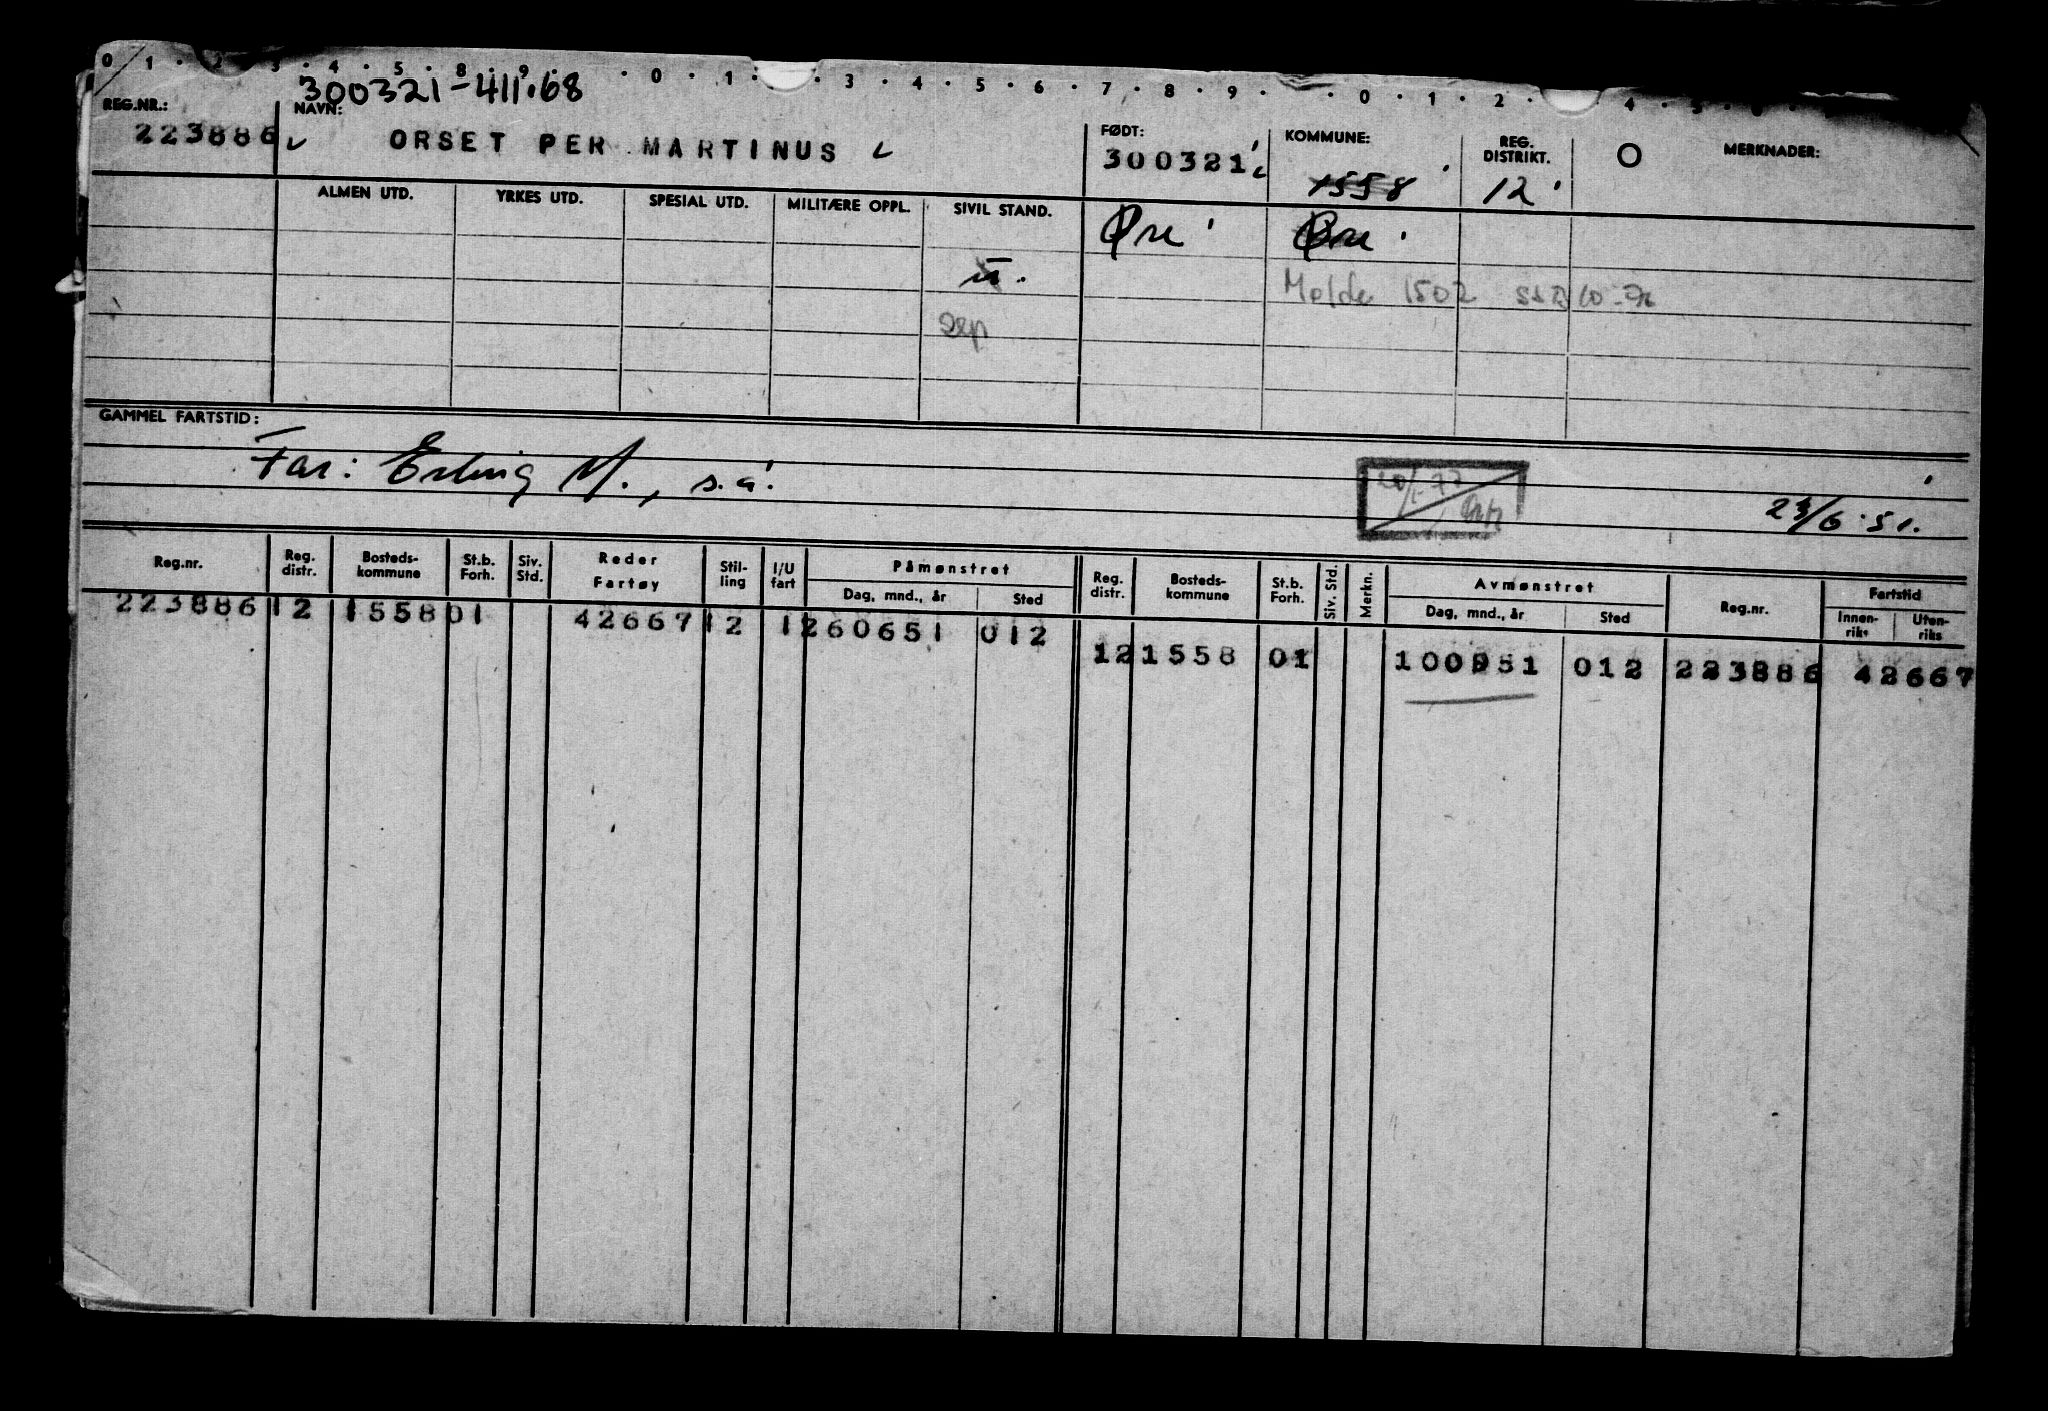 0 1 · 2 · 3 · 4 · 5 · 8 · 9 · · 0 · 1 · · 3 · 4 · 5 · 6 · 7 · 8 · 9 · · 0 · 1 · 2 · 4 · 5 ·
300321-411·68
REG.NR.: NAVN: FØDT: KOMMUNE: REG. DISTRIKT. O MERKNADER:
223886 ORSET PER MARTINUS 300321 1558 12
ALMEN UTD. YRKES UTD. SPESIAL UTD. MILITÆRE OPPL. SIVIL STAND. Øre Øre
Molde 1502
GAMMEL FARTSTID:
Far: Erling M., s.a.
23/6·51.
Reg.nr. Reg. distr. Bosteds-kommune St.b. Forh. Siv. Std. Reder Fartøy Stil-ling I/U fart Påmønstret Dag, mnd., år Sted Reg. distr. Bosteds-kommune St.b. Forh. Siv. Std. Merkn. Avmønstret Dag, mnd., år Sted Reg.nr. Fartstid Innen-riks Uten-riks
223886 12 1558 01 42667 12 1 260651 012
12 1558 01 012 223886 42667